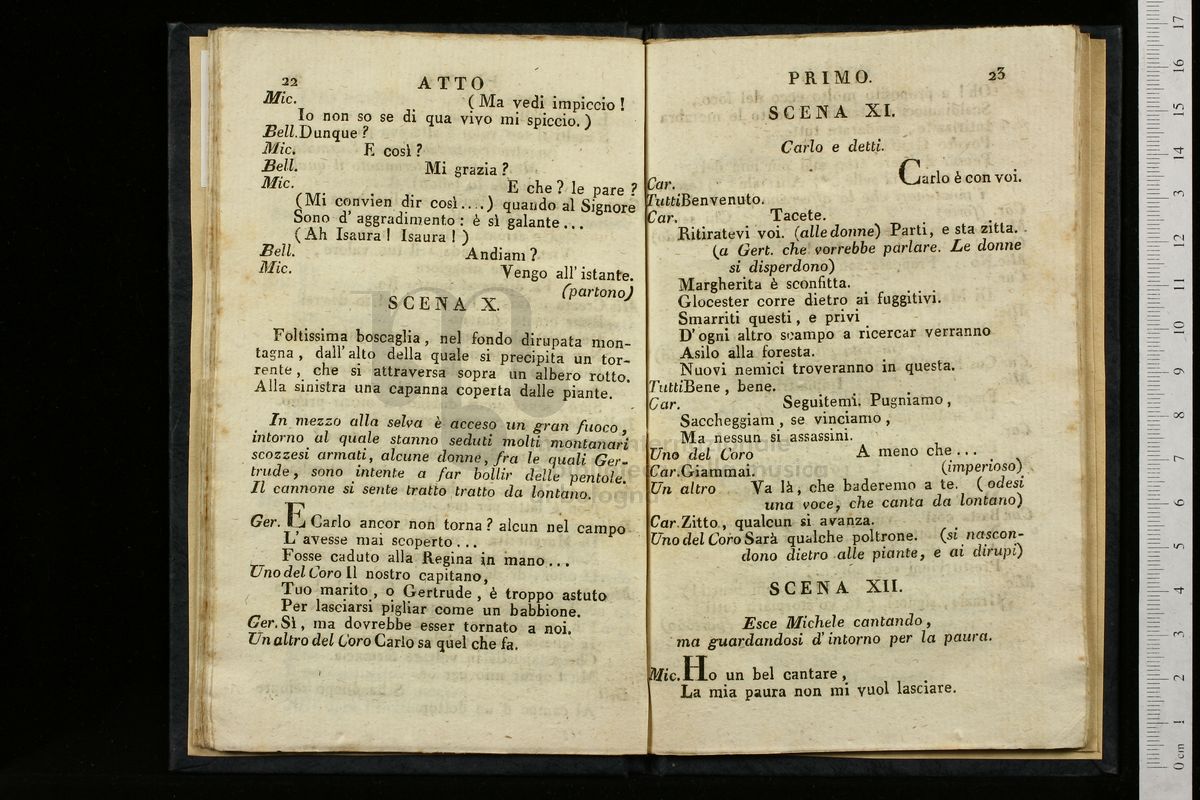 22 ATTO
Mic. (Ma vedi impiccio!
Io non so se di qua vivo mi spiccio.)
Bell. Dunque?
Mic. E così?
Bell. Mi grazia?
Mic. E che? le pare?
(Mi convien dir così....) quando al Signore
Sono d'aggradimento: è sì galante...
(Ah Isaura! Isaura!)
Bell. Andiam?
Mic. Vengo all'istante.
(partono)
SCENA X.
Foltissima boscaglia, nel fondo dirupata mon-
tagna, dall'alto della quale si precipita un tor-
rente, che si attraversa sopra un albero rotto.
Alla sinistra una capanna coperta dalle piante.
In mezzo alla selva è acceso un gran fuoco,
intorno al quale stanno seduti molti montanari
scozzesi armati, alcune donne, fra le quali Ger-
trude, sono intente a far bollir delle pentole.
Il cannone si sente tratto tratto da lontano.
Ger. E Carlo ancor non torna? alcun nel campo
L'avesse mai scoperto...
Fosse caduto alla Regina in mano...
Uno del Coro Il nostro capitano,
Tuo marito, o Gertrude, è troppo astuto
Per lasciarsi pigliar come un babbione.
Ger. Sì, ma dovrebbe esser tornato a noi.
Un altro del Coro Carlo sa quel che fa.
PRIMO. 23
SCENA XI.
Carlo e detti.
Car. Carlo è con voi.
Tutti Benvenuto.
Car. Tacete.
Ritiratevi voi. (alle donne) Parti, e sta zitta.
(a Gert. che vorrebbe parlare. Le donne
si disperdono)
Margherita è sconfitta.
Glocester corre dietro ai fuggitivi.
Smarriti questi, e privi
D'ogni altro scampo a ricercar verranno
Asilo alla foresta.
Nuovi nemici troveranno in questa.
Tutti Bene, bene.
Car. Seguitemi. Pugniamo,
Saccheggiam, se vinciamo,
Ma nessun si assassini.
Uno del Coro A meno che...
Car. Giammai. (imperioso)
Un altro Va là, che baderemo a te. (odesi
una voce, che canta da lontano)
Car. Zitto, qualcun si avanza.
Uno del Coro Sarà qualche poltrone. (si nascon-
dono dietro alle piante, e ai dirupi)
SCENA XII.
Esce Michele cantando,
ma guardandosi d'intorno per la paura.
Mic. Ho un bel cantare,
La mia paura non mi vuol lasciare.
0 cm 1 2 3 4 5 6 7 8 9 10 11 12 13 14 15 16 17